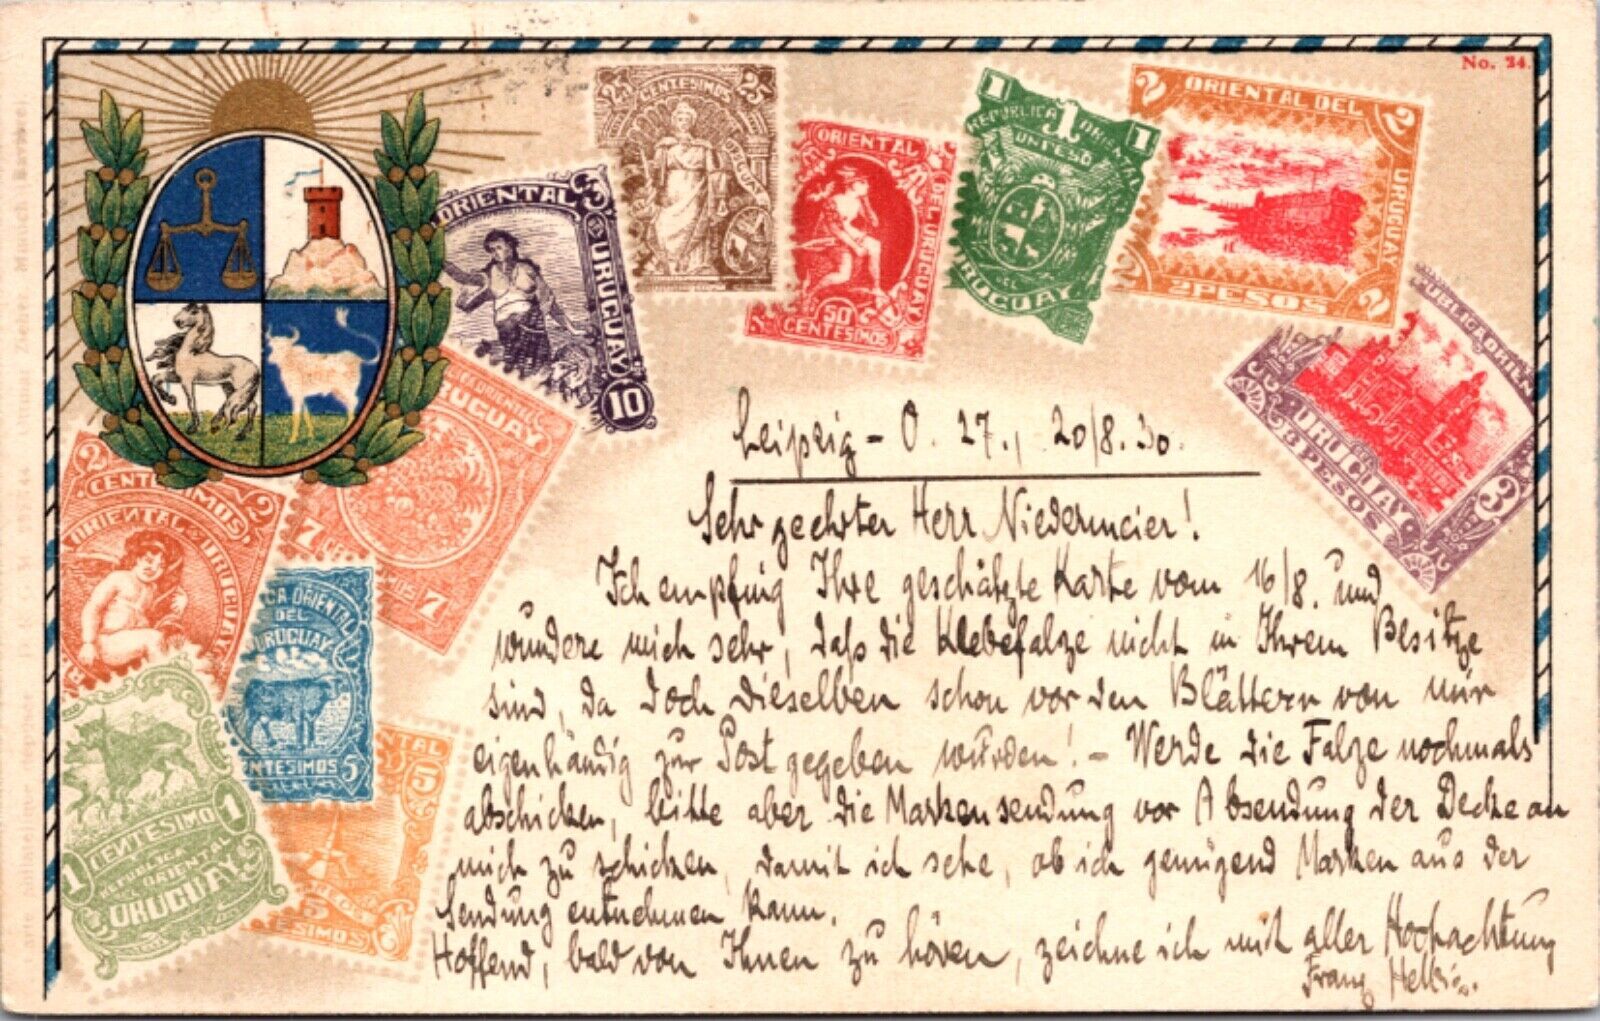 No. 34.
25 CENTESIMOS 25
URUGUAY
ORIENTAL
URUGUAY
10
ORIENTAL
DEL URUGUAY
50
CENTESIMOS
1 1 1
REPUBLICA ORIENTAL
UN PESO
DEL
URUGUAY
2 ORIENTAL DEL 2
URUGUAY
2 2 PESOS 2
PUBLICA ORIEN
URUGUAY
3 PESOS 3
CA ORIENTAL
URUGUAY
7 7
2 CENTESIMOS 2
ORIENTAL URUGUAY
CA ORIENTAL
DEL
URUGUAY
NTESIMOS 5
1 CENTESIMO 1
REPUBLICA
DEL ORIENTAL
URUGUAY
NTAL
5
5
ESIMOS
Leipzig - O. 27., 20/8. 30.
Sehr geehrter Herr Niedermeier!
Ich empfing Ihre geschätzte Karte vom 16/8. und
wundere mich sehr, daß die Klebefalze nicht in Ihrem Besitze
sind, da doch dieselben schon vor den Blättern von mir
eigenhändig zur Post gegeben wurden! - Werde die Falze nochmals
abschicken, bitte aber die Markensendung vor Absendung der Decke an
mich zu schicken, damit ich sehe, ob ich genügend Marken aus der
Sendung entnehmen kann.
Hoffend, bald von Ihnen zu hören, zeichne ich mit aller Hochachtung
Franz